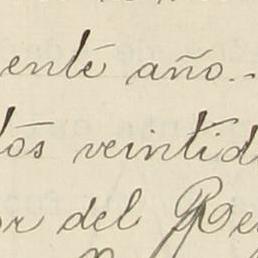 ente año.-
tos veintid
or del Re